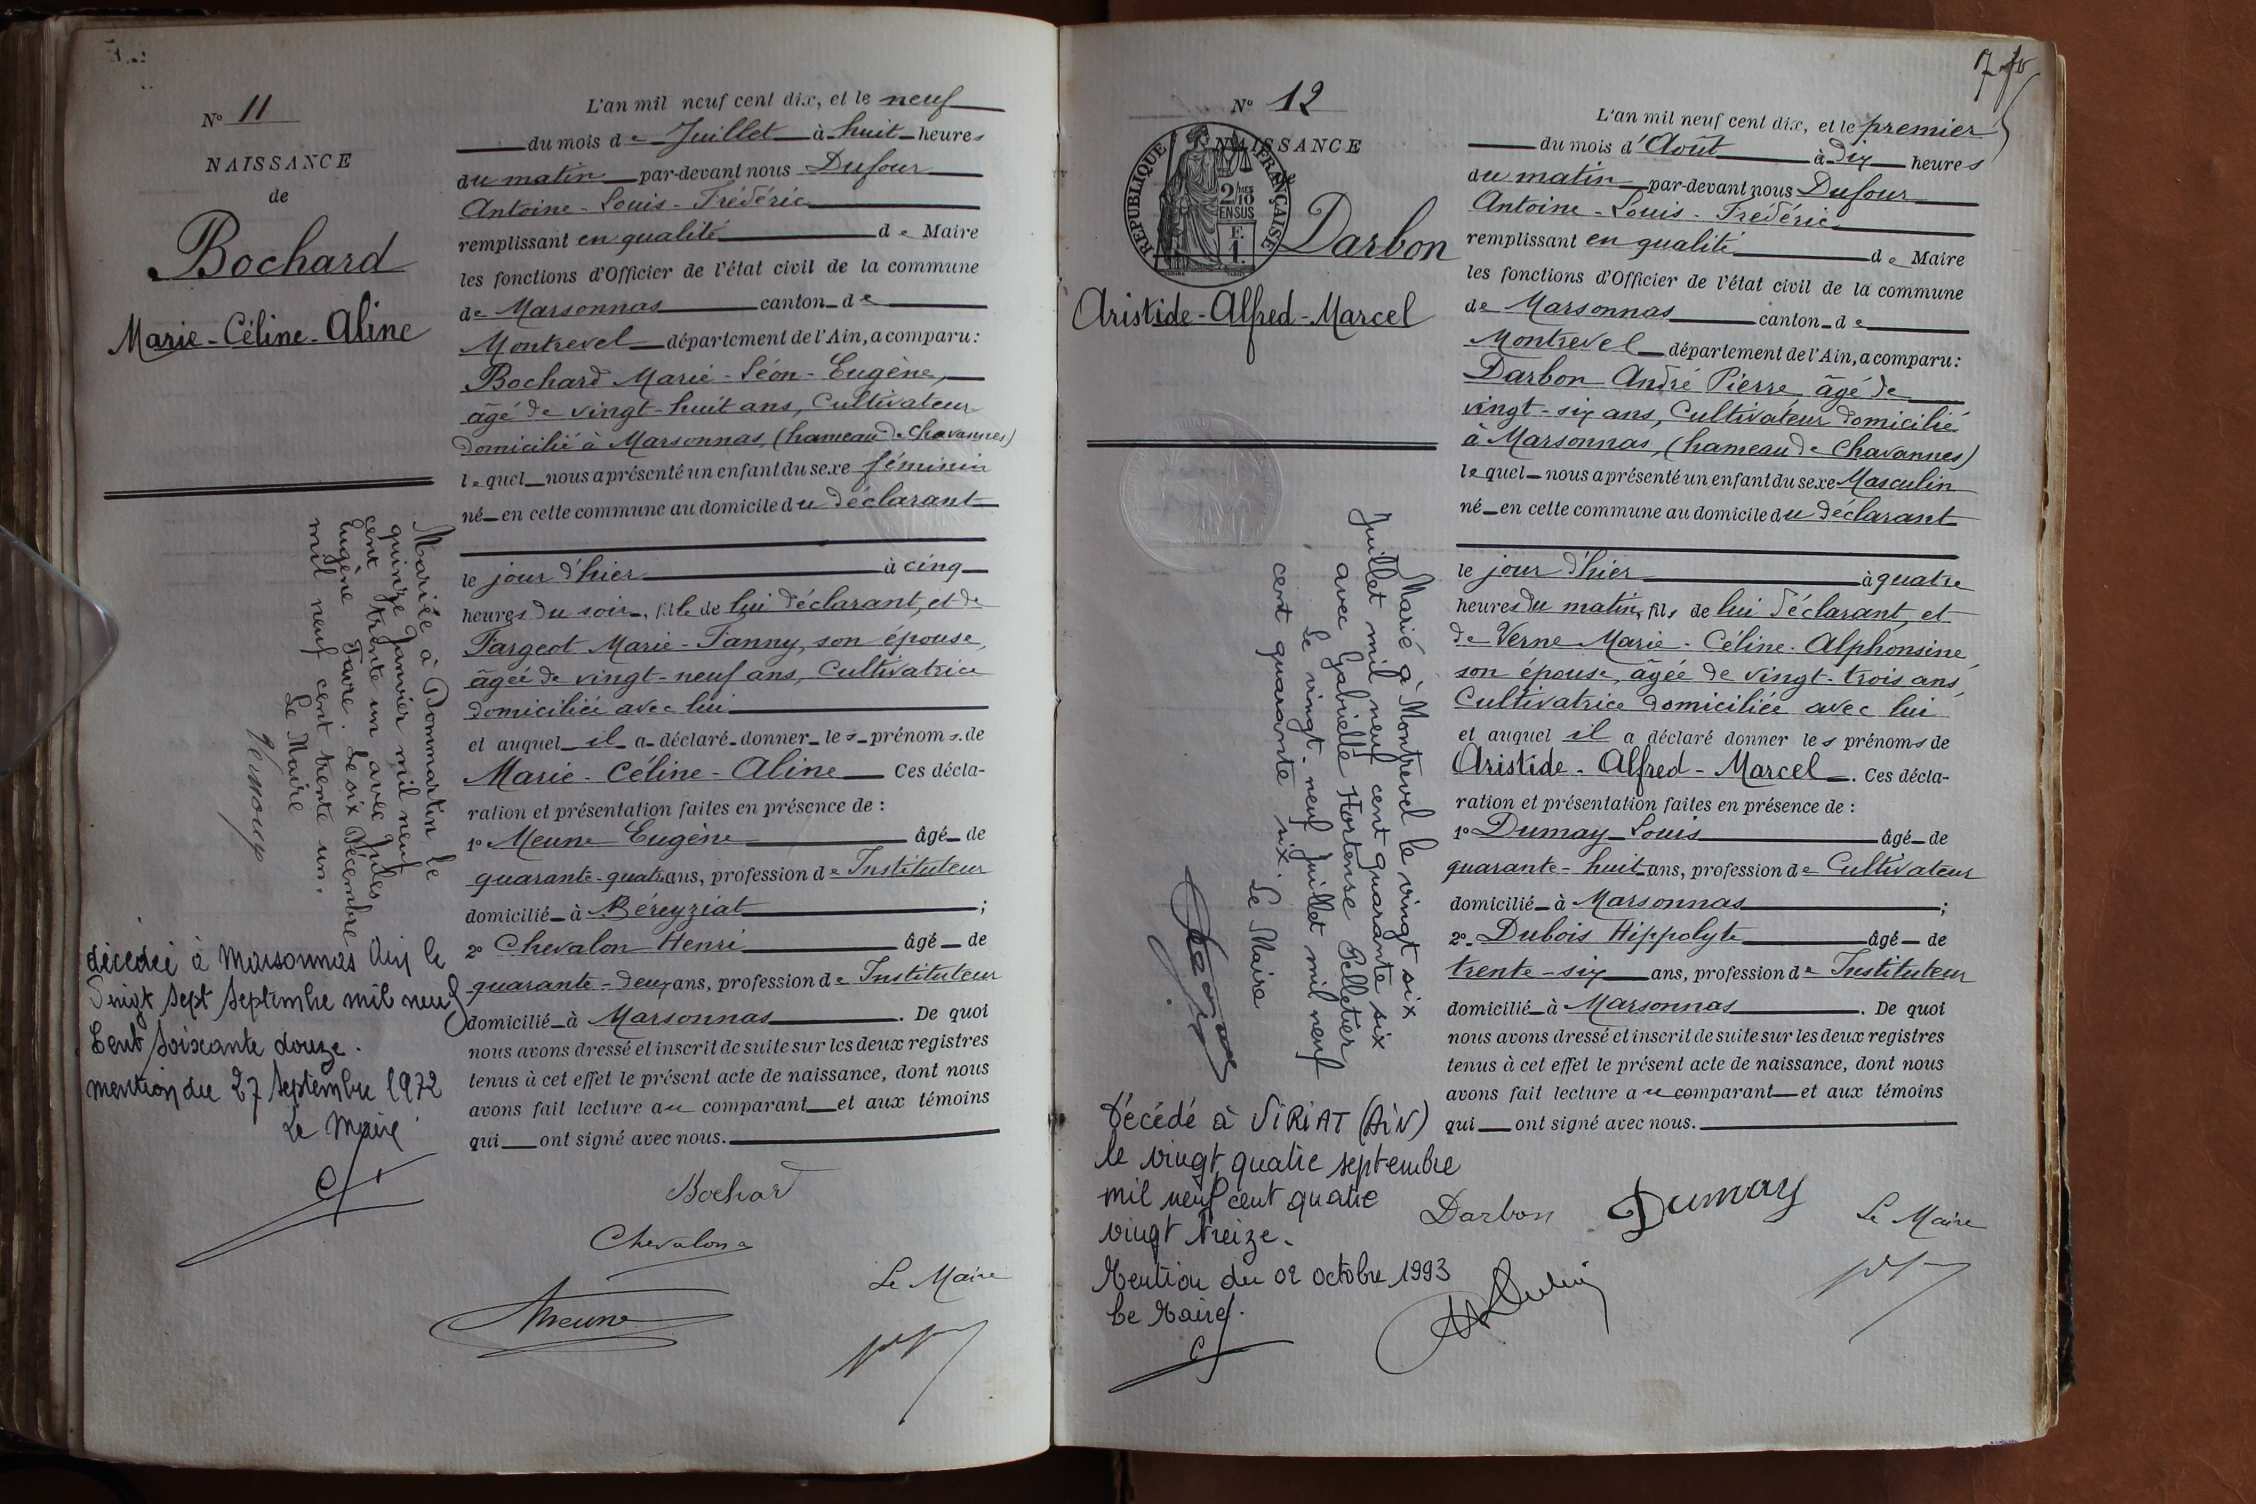 N° 11
NAISSANCE
de
Bochard
Marie-Céline-Aline
L'an mil neuf cent dix, et le neuf
du mois de Juillet à huit heures
du matin par-devant nous Dufour
Antoine-Louis-Frédéric
remplissant en qualité de Maire
les fonctions d'Officier de l'état civil de la commune
de Marsonnas canton de
Montrevel département de l'Ain, a comparu :
Bochard Marie-Léon-Eugène,
âgé de vingt-huit ans, Cultivateur
domicilié à Marsonnas, (hameau de Chavannes)
lequel nous a présenté un enfant du sexe féminin
né en cette commune au domicile du déclarant
le jour d'hier à cinq
heures du soir, fille de lui déclarant, et de
Fargeot Marie-Fanny, son épouse,
âgée de vingt-neuf ans, Cultivatrice
domiciliée avec lui
et auquel il a déclaré donner les prénoms de
Marie-Céline-Aline Ces décla-
ration et présentation faites en présence de :
1° Meune Eugène âgé de
quarante-quatre ans, profession de Instituteur
domicilié à Béreyziat ;
2° Chevalon Henri âgé de
quarante-deux ans, profession de Instituteur
domicilié à Marsonnas. De quoi
nous avons dressé et inscrit de suite sur les deux registres
tenus à cet effet le présent acte de naissance, dont nous
avons fait lecture au comparant et aux témoins
qui ont signé avec nous.
Bochard
Chevalon
Meune
Le Maire
Mariée à Dommartin le
quinze Janvier mil neuf
cent trente un avec Jules
Eugène Favre. Le six Décembre
mil neuf cent trente un.
Le Maire
décédée à Marsonnas Ain le
Vingt sept Septembre mil neuf
Cent soixante douze.
mention du 27 septembre 1972
Le Maire
N° 12
NAISSANCE
de
RÉPUBLIQUE FRANÇAISE
2/10
EN SUS
F.
1.
Darbon
Aristide-Alfred-Marcel
L'an mil neuf cent dix, et le premier
du mois d'Août à dix heures
du matin par-devant nous Dufour
Antoine-Louis-Frédéric
remplissant en qualité de Maire
les fonctions d'Officier de l'état civil de la commune
de Marsonnas canton de
Montrevel département de l'Ain, a comparu :
Darbon André Pierre âgé de
vingt-six ans, Cultivateur domicilié
à Marsonnas, (hameau de Chavannes)
lequel nous a présenté un enfant du sexe Masculin
né en cette commune au domicile du déclarant
le jour d'hier à quatre
heures du matin, fils de lui déclarant, et
de Verne Marie-Céline-Alphonsine,
son épouse, âgée de vingt-trois ans,
Cultivatrice domiciliée avec lui
et auquel il a déclaré donner les prénoms de
Aristide-Alfred-Marcel. Ces décla-
ration et présentation faites en présence de :
1° Dumay Louis âgé de
quarante-huit ans, profession de Cultivateur
domicilié à Marsonnas ;
2° Dubois Hippolyte âgé de
trente-six ans, profession de Instituteur
domicilié à Marsonnas. De quoi
nous avons dressé et inscrit de suite sur les deux registres
tenus à cet effet le présent acte de naissance, dont nous
avons fait lecture au comparant et aux témoins
qui ont signé avec nous.
Darbon Dumay Le Maire
Marié à Montrevel le vingt six
Juillet mil neuf cent quarante six
avec Gabrielle Hortense Pelletier
Le vingt-neuf Juillet mil neuf
cent quarante six. Le Maire
Décédé à VIRIAT (AIN)
le vingt quatre septembre
mil neuf cent quatre
vingt treize.
Mention du 02 octobre 1993
Le Maire.